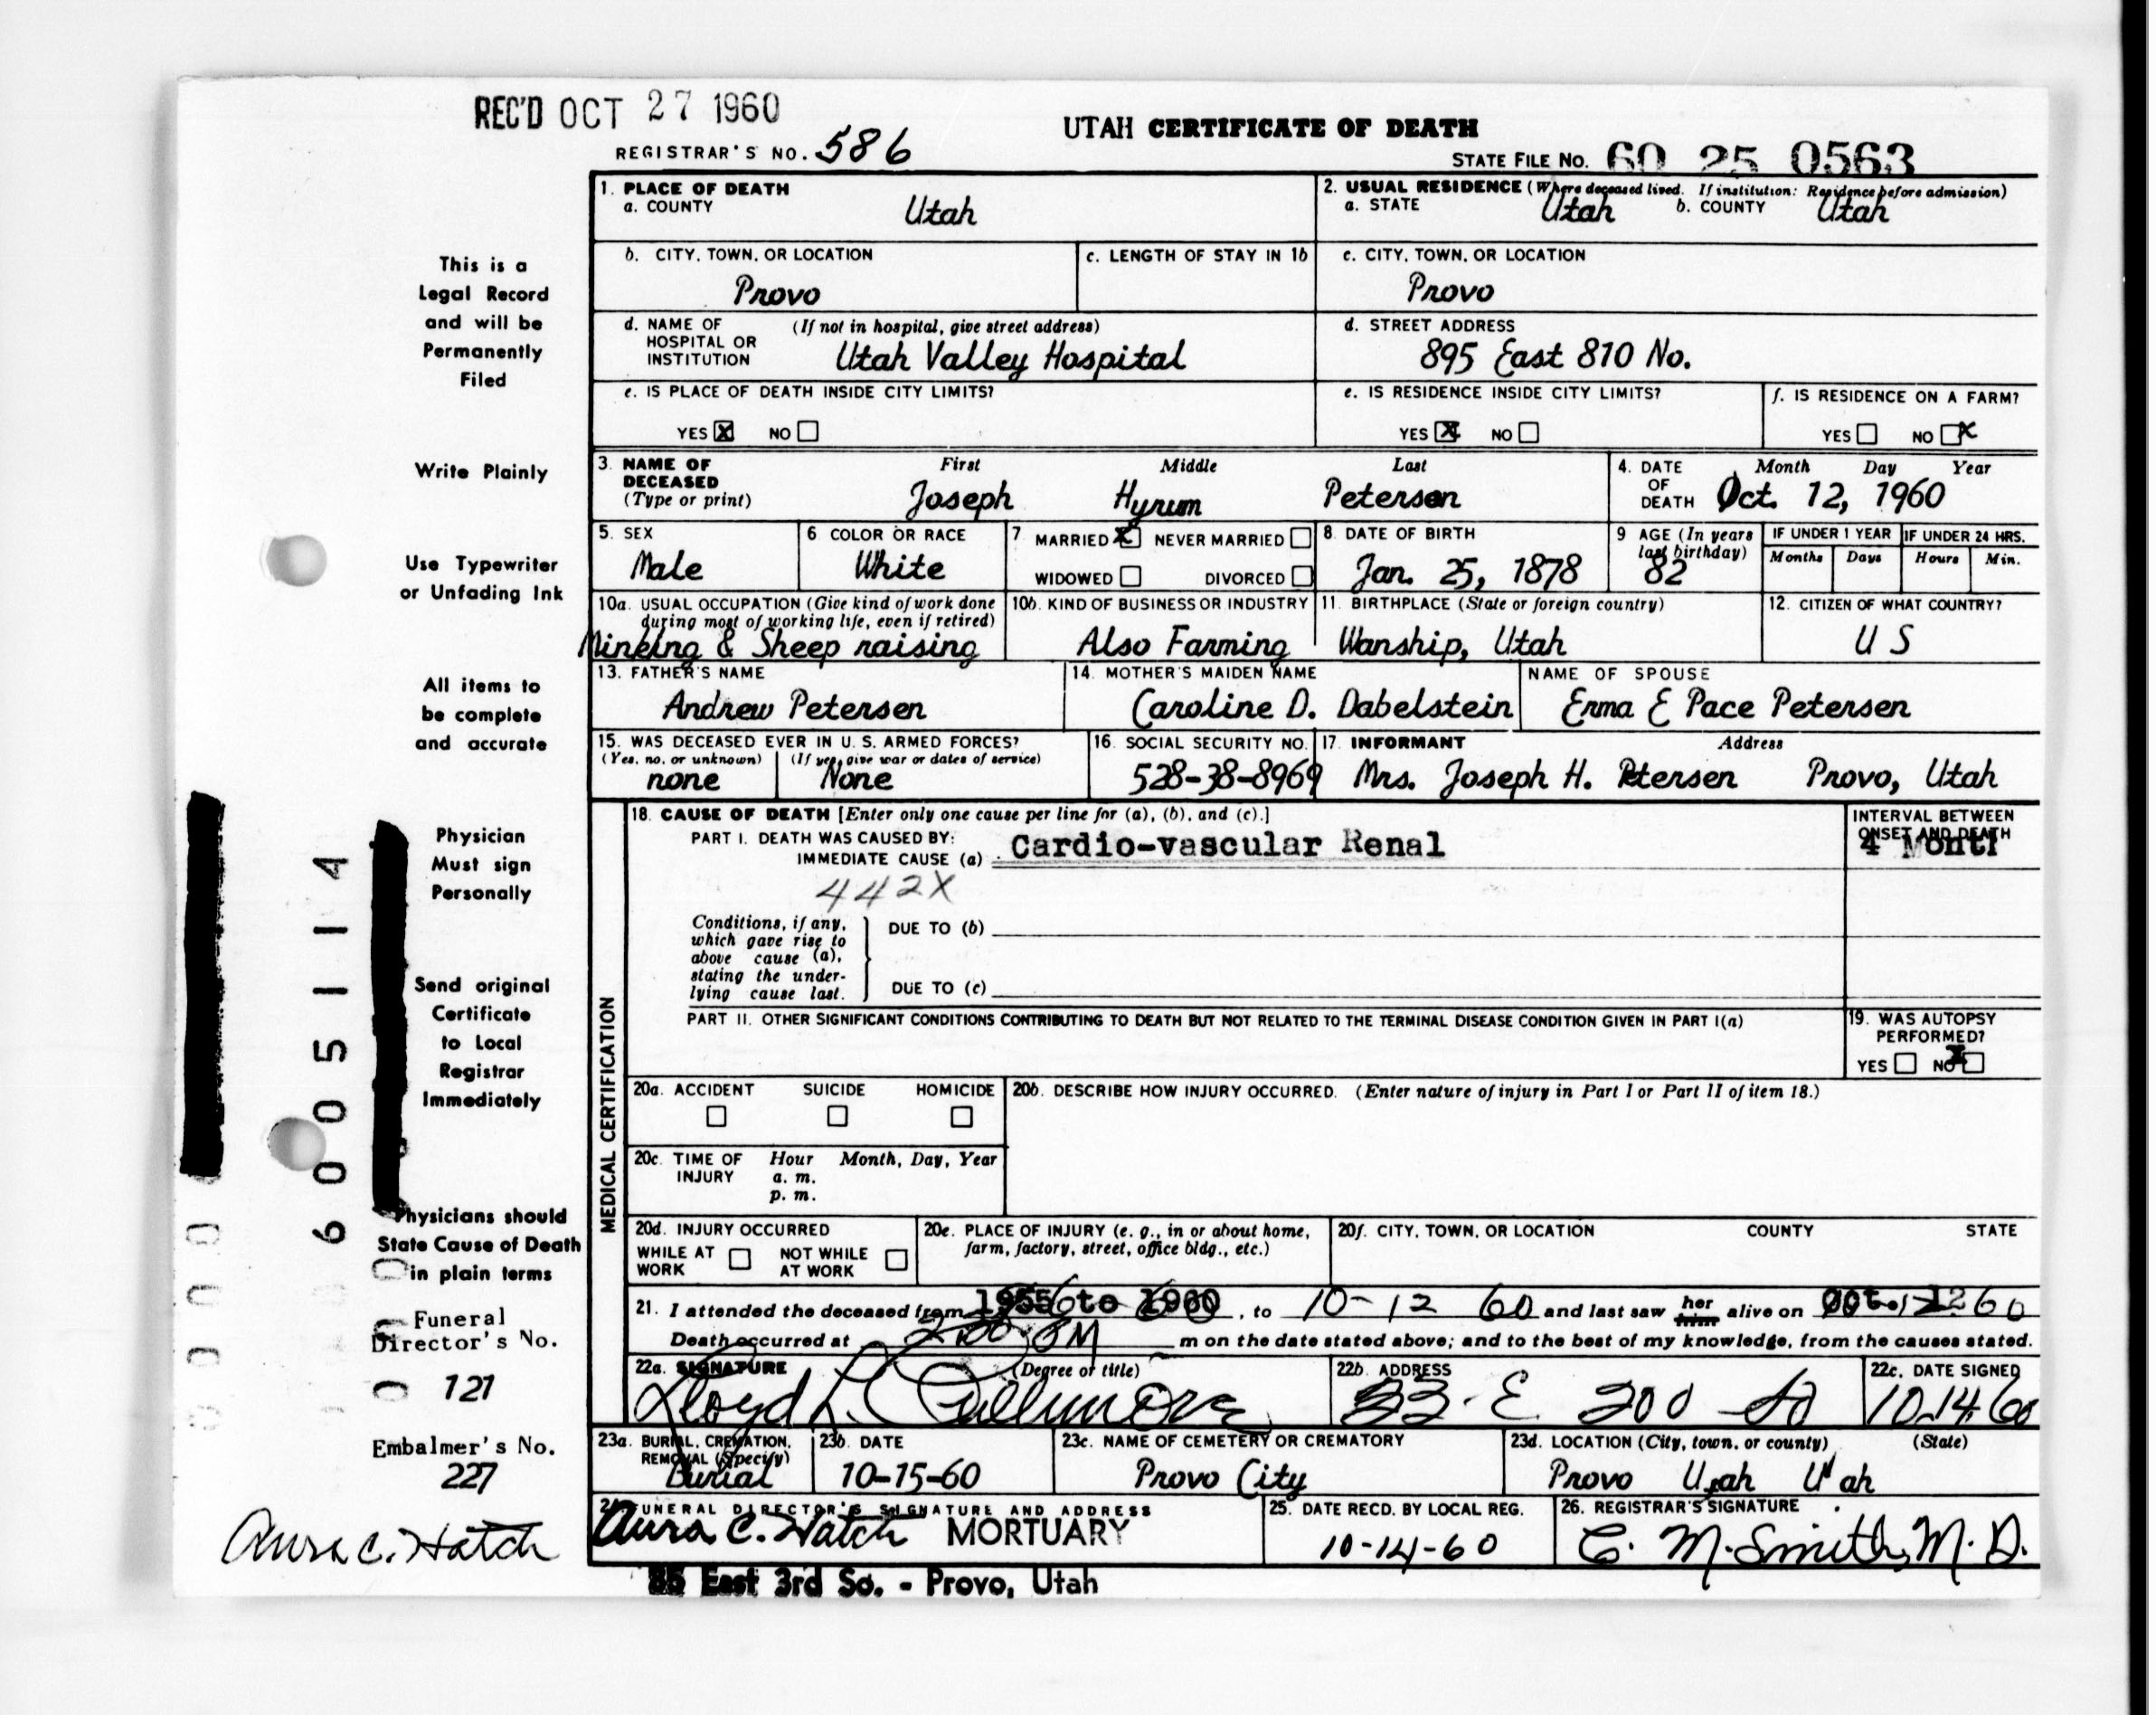 REC'D OCT 27 1960
UTAH CERTIFICATE OF DEATH
REGISTRAR'S NO. 586
STATE FILE NO. 60 25 0563
1. PLACE OF DEATH
a. COUNTY Utah
2. USUAL RESIDENCE (Where deceased lived. If institution: Residence before admission)
a. STATE Utah b. COUNTY Utah
b. CITY, TOWN, OR LOCATION
Provo
c. LENGTH OF STAY IN 1b
c. CITY, TOWN, OR LOCATION
Provo
d. NAME OF HOSPITAL OR INSTITUTION (If not in hospital, give street address)
Utah Valley Hospital
d. STREET ADDRESS
895 East 810 No.
e. IS PLACE OF DEATH INSIDE CITY LIMITS?
YES X NO
e. IS RESIDENCE INSIDE CITY LIMITS?
YES X NO
f. IS RESIDENCE ON A FARM?
YES NO X
3. NAME OF DECEASED (Type or print)
First Middle Last
Joseph Hyrum Petersen
4. DATE OF DEATH Month Day Year
Oct. 12, 1960
5. SEX
Male
6 COLOR OR RACE
White
7 MARRIED X NEVER MARRIED
WIDOWED DIVORCED
8 DATE OF BIRTH
Jan. 25, 1878
9 AGE (In years last birthday)
82
IF UNDER 1 YEAR
Months Days
IF UNDER 24 HRS.
Hours Min.
10a. USUAL OCCUPATION (Give kind of work done during most of working life, even if retired)
& Sheep raising
10b. KIND OF BUSINESS OR INDUSTRY
Also Farming
11. BIRTHPLACE (State or foreign country)
Wanship, Utah
12. CITIZEN OF WHAT COUNTRY?
U S
13. FATHER'S NAME
Andrew Petersen
14. MOTHER'S MAIDEN NAME
Caroline D. Dabelstein
NAME OF SPOUSE
Erma E Pace Petersen
15. WAS DECEASED EVER IN U. S. ARMED FORCES?
(Yes, no, or unknown) (If yes, give war or dates of service)
none None
16. SOCIAL SECURITY NO.
528-38-8969
17. INFORMANT Address
Mrs. Joseph H. Petersen Provo, Utah
MEDICAL CERTIFICATION
18. CAUSE OF DEATH [Enter only one cause per line for (a), (b), and (c).]
PART I. DEATH WAS CAUSED BY:
IMMEDIATE CAUSE (a) Cardio-vascular Renal
442X
INTERVAL BETWEEN ONSET AND DEATH
4
Conditions, if any, which gave rise to above cause (a), stating the underlying cause last.
DUE TO (b)
DUE TO (c)
PART II. OTHER SIGNIFICANT CONDITIONS CONTRIBUTING TO DEATH BUT NOT RELATED TO THE TERMINAL DISEASE CONDITION GIVEN IN PART I(a)
19. WAS AUTOPSY PERFORMED?
YES NO X
20a. ACCIDENT SUICIDE HOMICIDE
20b. DESCRIBE HOW INJURY OCCURRED. (Enter nature of injury in Part I or Part II of item 18.)
20c. TIME OF INJURY Hour Month, Day, Year
a. m.
p. m.
20d. INJURY OCCURRED
WHILE AT WORK NOT WHILE AT WORK
20e. PLACE OF INJURY (e. g., in or about home, farm, factory, street, office bldg., etc.)
20f. CITY, TOWN, OR LOCATION COUNTY STATE
21. I attended the deceased from to 1960, to 10-12 60 and last saw her him alive on Oct. 12 60
Death occurred at m on the date stated above; and to the best of my knowledge, from the causes stated.
22a. SIGNATURE (Degree or title)
Lloyd L. Cullimore
22b. ADDRESS
E 200
22c. DATE SIGNED
10.14.60
23a. BURIAL, CREMATION, REMOVAL (Specify)
Burial
23b. DATE
10-15-60
23c. NAME OF CEMETERY OR CREMATORY
Provo City
23d. LOCATION (City, town, or county) (State)
Provo Utah Utah
24. FUNERAL DIRECTOR'S SIGNATURE AND ADDRESS
Aura C. Hatch MORTUARY
85 East 3rd So. - Provo, Utah
25. DATE RECD. BY LOCAL REG.
10-14-60
26. REGISTRAR'S SIGNATURE
C. M. Smith, M. D.
This is a
Legal Record
and will be
Permanently
Filed
Write Plainly
Use Typewriter
or Unfading Ink
All items to
be complete
and accurate
Physician
Must sign
Personally
Send original
Certificate
to Local
Registrar
Immediately
Physicians should
State Cause of Death
in plain terms
Funeral
Director's No.
121
Embalmer's No.
227
Aura C. Hatch
6005114